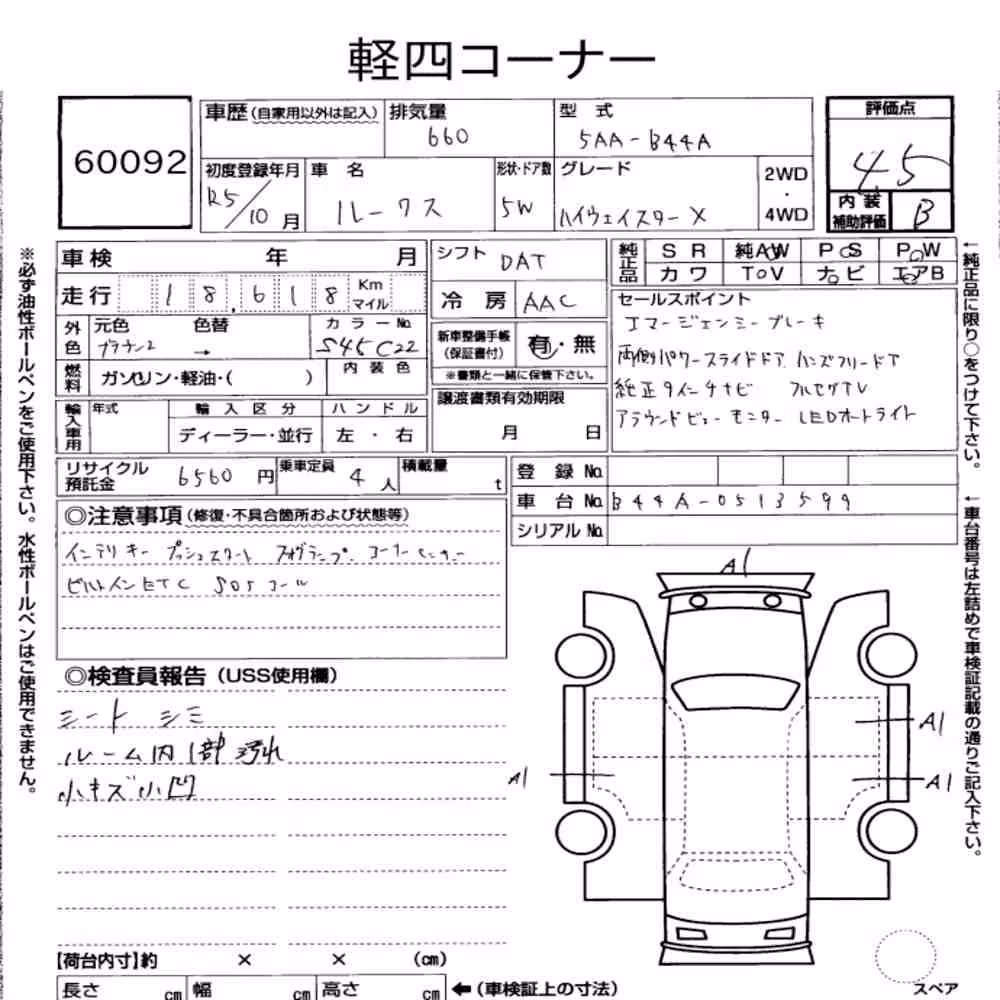 軽四コーナー
60092
車歴(自家用以外は記入) 排気量 660
型式 5AA-B44A
評価点 4.5
内装補助評価 B
初度登録年月 R5/10月
車名 ルークス
形状・ドア数 5W
グレード ハイウェイスターX
2WD・4WD
車検 年 月
走行 18,618 Km マイル
外色 元色 ブラウン2 色替 →
カラーNo. S45C22
燃料 ガソリン・軽油・( )
内装色
輸入車用 年式 輸入区分 ディーラー・並行 ハンドル 左・右
シフト DAT
冷房 AAC
新車整備手帳(保証書付) 有・無
※書類と一緒に保管下さい。
譲渡書類有効期限
月 日
純正品 SR 純AW PS PW
カワ TV ナビ エアB
セールスポイント
エマージェンシーブレーキ
両側パワースライドドア ハンズフリードア
純正9インチナビ フルセグTV
アラウンドビューモニター LEDオートライト
リサイクル預託金 6560円
乗車定員 4人
積載量 t
登録No.
車台No. B44A-0513599
シリアルNo.
◎注意事項(修復・不具合箇所および状態等)
インテリキー プッシュスタート フォグランプ コーナーセンサー
ビルトインETC SOSコール
◎検査員報告(USS使用欄)
シート シミ
ルーム内1部汚れ
小キズ小凹
A1
A1
A1
A1
【荷台内寸】約 × × (cm)
長さ cm 幅 cm 高さ cm ←(車検証上の寸法)
スペア
※必ず油性ボールペンをご使用下さい。水性ボールペンはご使用できません。
←純正品に限り○をつけて下さい。
←車台番号は左詰めで車検証記載の通りご記入下さい。